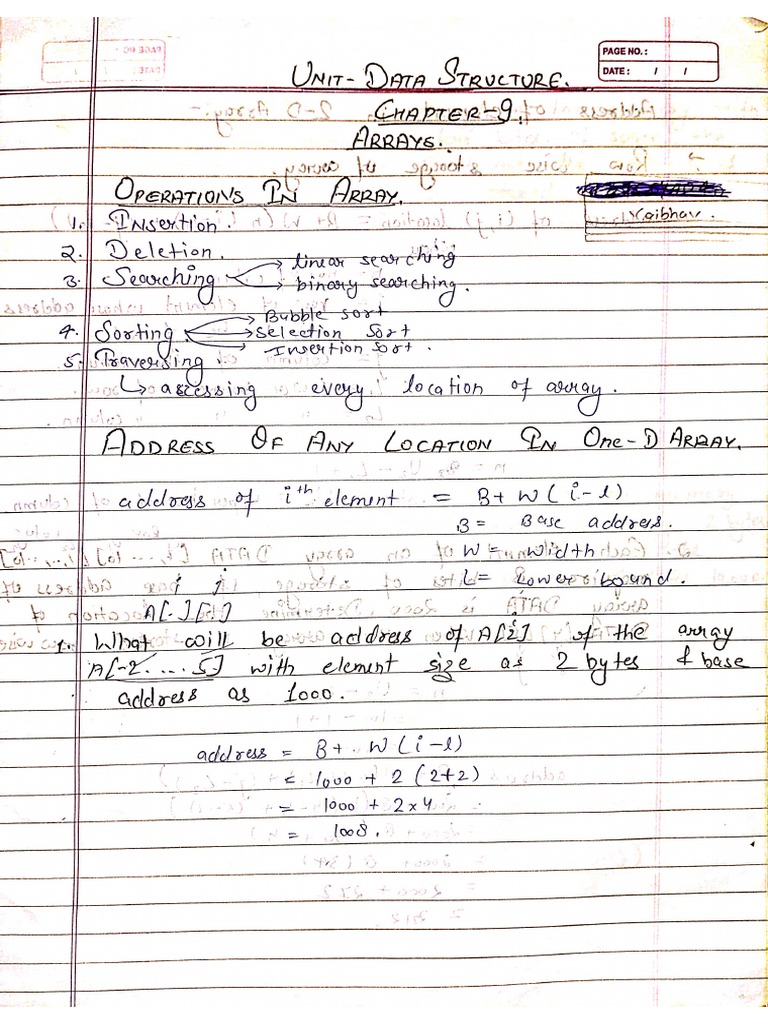 PAGE NO. :
DATE : / /
UNIT- DATA STRUCTURE.
CHAPTER-9.
ARRAYS.
OPERATIONS IN ARRAY.
Vaibhav.
1. Insertion.
2. Deletion.
3. Searching → linear searching
→ binary searching.
4. Sorting. → Bubble sort
→ Selection Sort
→ Insertion Sort.
5. Traversing.
↳ assessing every location of array.
ADDRESS OF ANY LOCATION IN One-D ARRAY.
address of ith element = B+ W (i-l)
B = Base address.
W = Width
l = Lower bound.
A[-][-]
1. What will be address of A[2] of the array
A[-2 .... 5] with element size as 2 bytes & base
address as 1000.
address = B+ W (i-l)
= 1000 + 2 (2+2)
= 1000 + 2×4
= 1008.